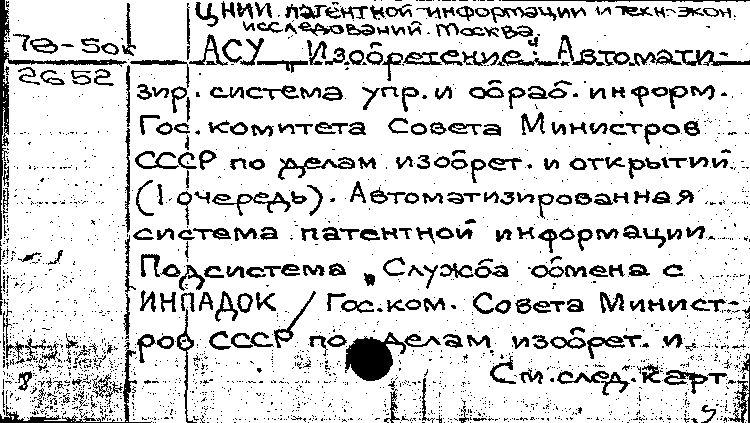 ЦНИИ патентной информации и техн-экон.
исследований. Москва.
78-50к
АСУ „Изобретение": Автомати-
2652
зир. система упр. и обраб. информ.
Гос. комитета Совета Министров
СССР по делам изобрет. и открытий
(1 очередь). Автоматизированная
система патентной информации.
Подсистема „Служба обмена с
ИНПАДОК / Гос. ком. Совета Минист-
ров СССР по делам изобрет. и
См. след. карт